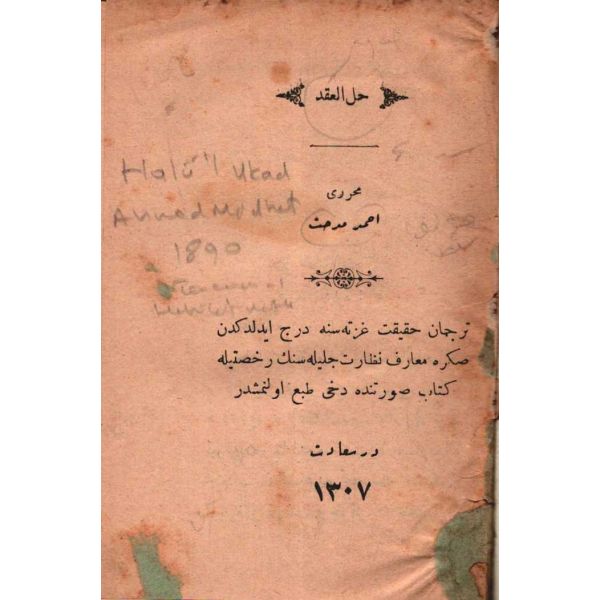 حل العقد
محرری
احمد مدحت
ترجمان حقیقت غزته‌سنه درج ایدلدکدن
صکره معارف نظارت جلیله‌سنك رخصتیله
کتاب صورتنده دخی طبع اولنمشدر
در سعادت
۱۳۰۷
Halû'l Ukad
Ahmed Midhat
1890